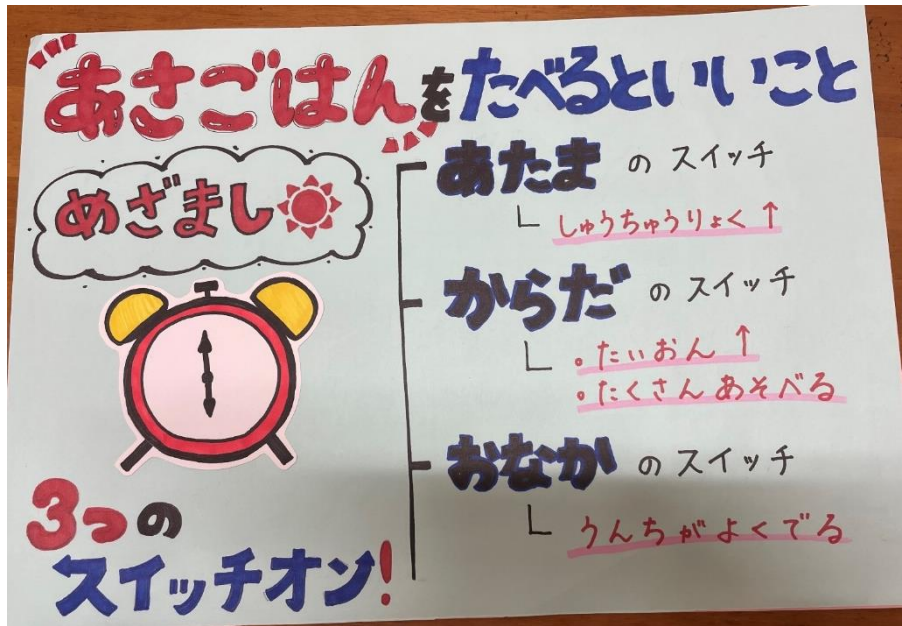 あさごはんをたべるといいこと
めざまし
3つの
スイッチオン!
あたまのスイッチ
しゅうちゅうりょく↑
からだのスイッチ
。たいおん↑
。たくさんあそべる
おなかのスイッチ
うんちがよくでる